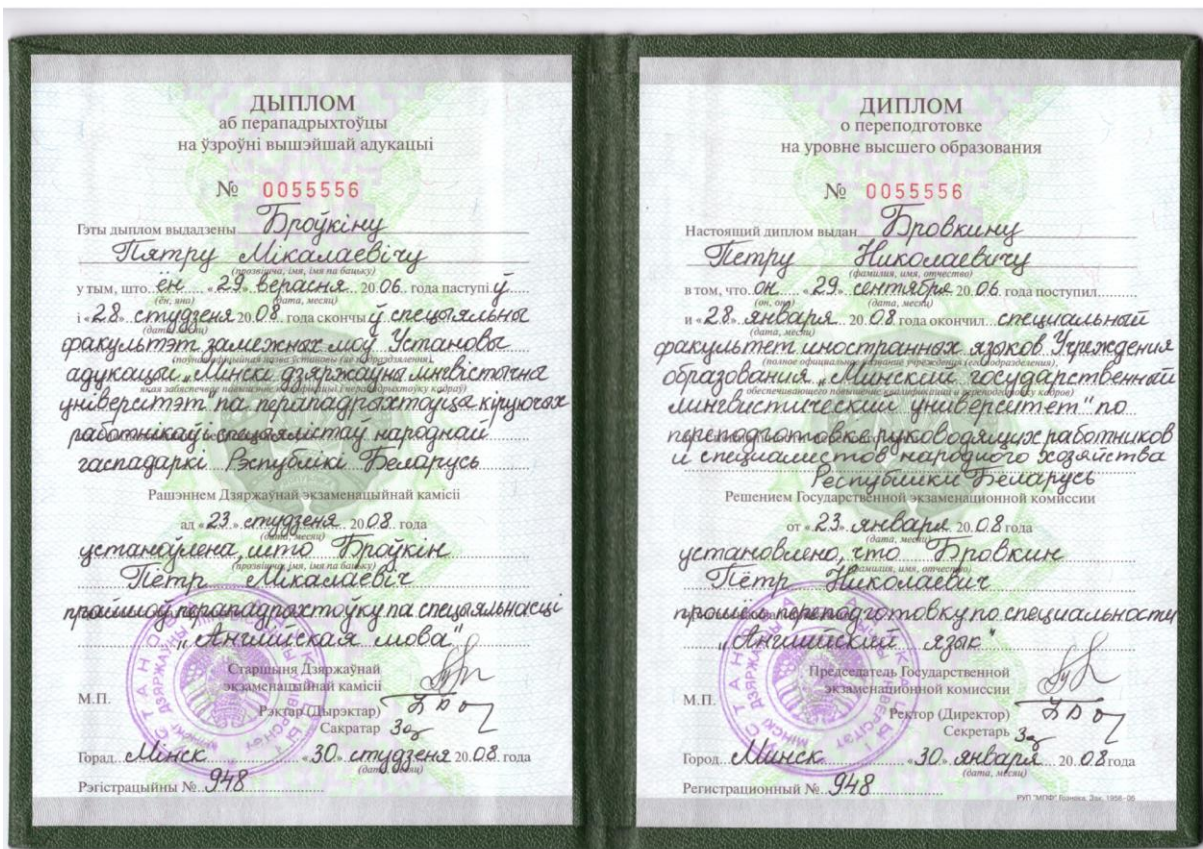 ДЫПЛОМ
аб перападрыхтоўцы
на ўзроўні вышэйшай адукацыі
№ 0055556
Гэты дыплом выдадзены Броўкіну
Пятру Мікалаевічу
(прозвішча, імя, імя па бацьку)
у тым, што ён «29» верасня 2006 года паступіў
(ён, яна) (дата, месяц)
і «28» студзеня 2008 года скончыў спецыяльны
(дата, месяц)
факультэт замежных моў Установы
(поўная афіцыйная назва ўстановы (яе падраздзялення),
адукацыі „Мінскі дзяржаўны лінгвістычны
якая забяспечвае павышэнне кваліфікацыі і перападрыхтоўку кадраў)
універсітэт" па перападрыхтоўцы кіруючых
работнікаў і спецыялістаў народнай
гаспадаркі Рэспублікі Беларусь
Рашэннем Дзяржаўнай экзаменацыйнай камісіі
ад «23» студзеня 2008 года
(дата, месяц)
устаноўлена, што Броўкін
(прозвішча, імя, імя па бацьку)
Пётр Мікалаевіч
прайшоў перападрыхтоўку па спецыяльнасці
„Англійская мова"
Старшыня Дзяржаўнай
экзаменацыйнай камісіі
М.П.
Рэктар (Дырэктар)
Сакратар
Горад Мінск «30» студзеня 2008 года
(дата, месяц)
Рэгістрацыйны № 948
ДИПЛОМ
о переподготовке
на уровне высшего образования
№ 0055556
Настоящий диплом выдан Бровкину
Петру Николаевичу
(фамилия, имя, отчество)
в том, что он «29» сентября 2006 года поступил
(он, она) (дата, месяц)
и «28» января 2008 года окончил специальный
(дата, месяц)
факультет иностранных языков Учреждения
(полное официальное название учреждения (его подразделения),
образования „Минский государственный
обеспечивающего повышение квалификации и переподготовку кадров)
лингвистический университет" по
переподготовке руководящих работников
и специалистов народного хозяйства
Республики Беларусь
Решением Государственной экзаменационной комиссии
от «23» января 2008 года
(дата, месяц)
установлено, что Бровкин
(фамилия, имя, отчество)
Пётр Николаевич
прошёл переподготовку по специальности
„Английский язык"
Председатель Государственной
экзаменационной комиссии
М.П.
Ректор (Директор)
Секретарь
Город Минск «30» января 2008 года
(дата, месяц)
Регистрационный № 948
РУП "МПФ" Гознака. Зак. 1956-06